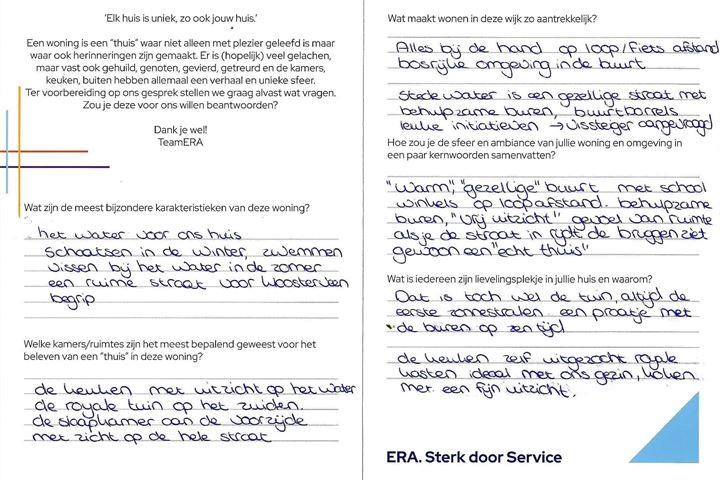 'Elk huis is uniek, zo ook jouw huis.'
Een woning is een "thuis" waar niet alleen met plezier geleefd is maar
waar ook herinneringen zijn gemaakt. Er is (hopelijk) veel gelachen,
maar vast ook gehuild, genoten, gevierd, getreurd en de kamers,
keuken, buiten hebben allemaal een verhaal en unieke sfeer.
Ter voorbereiding op ons gesprek stellen we graag alvast wat vragen.
Zou je deze voor ons willen beantwoorden?
Dank je wel!
TeamERA
Wat zijn de meest bijzondere karakteristieken van deze woning?
het water voor ons huis
schaatsen in de winter, zwemmen
vissen bij het water in de zomer
een ruime straat voor Woosterveen
begrip
Welke kamers/ruimtes zijn het meest bepalend geweest voor het
beleven van een "thuis" in deze woning?
de keuken met uitzicht op het water
de royale tuin op het zuiden.
de slaapkamer aan de voorzijde
met zicht op de hele straat
Wat maakt wonen in deze wijk zo aantrekkelijk?
Alles bij de hand op loop/fiets afstand
bosrijke omgeving in de buurt
Stede water is een gezellige straat met
behulpzame buren, buurtborrels
leuke initiatieven → vissteger aangevraagd
Hoe zou je de sfeer en ambiance van jullie woning en omgeving in
een paar kernwoorden samenvatten?
"Warm", "gezellige" buurt met school
winkels op loopafstand. behulpzame
buren, "vrij uitzicht" gevoel van ruimte
als je de straat in rijdt de bruggen ziet
gewoon een "echt thuis"
Wat is iedereen zijn lievelingsplekje in jullie huis en waarom?
Dat is toch wel de tuin, altijd de
eerste zonnestralen. een praatje met
de buren op zen tijd
de keuken zelf uitgezocht royale
kasten ideaal met ons gezin, koken
met een fijn uitzicht.
ERA. Sterk door Service